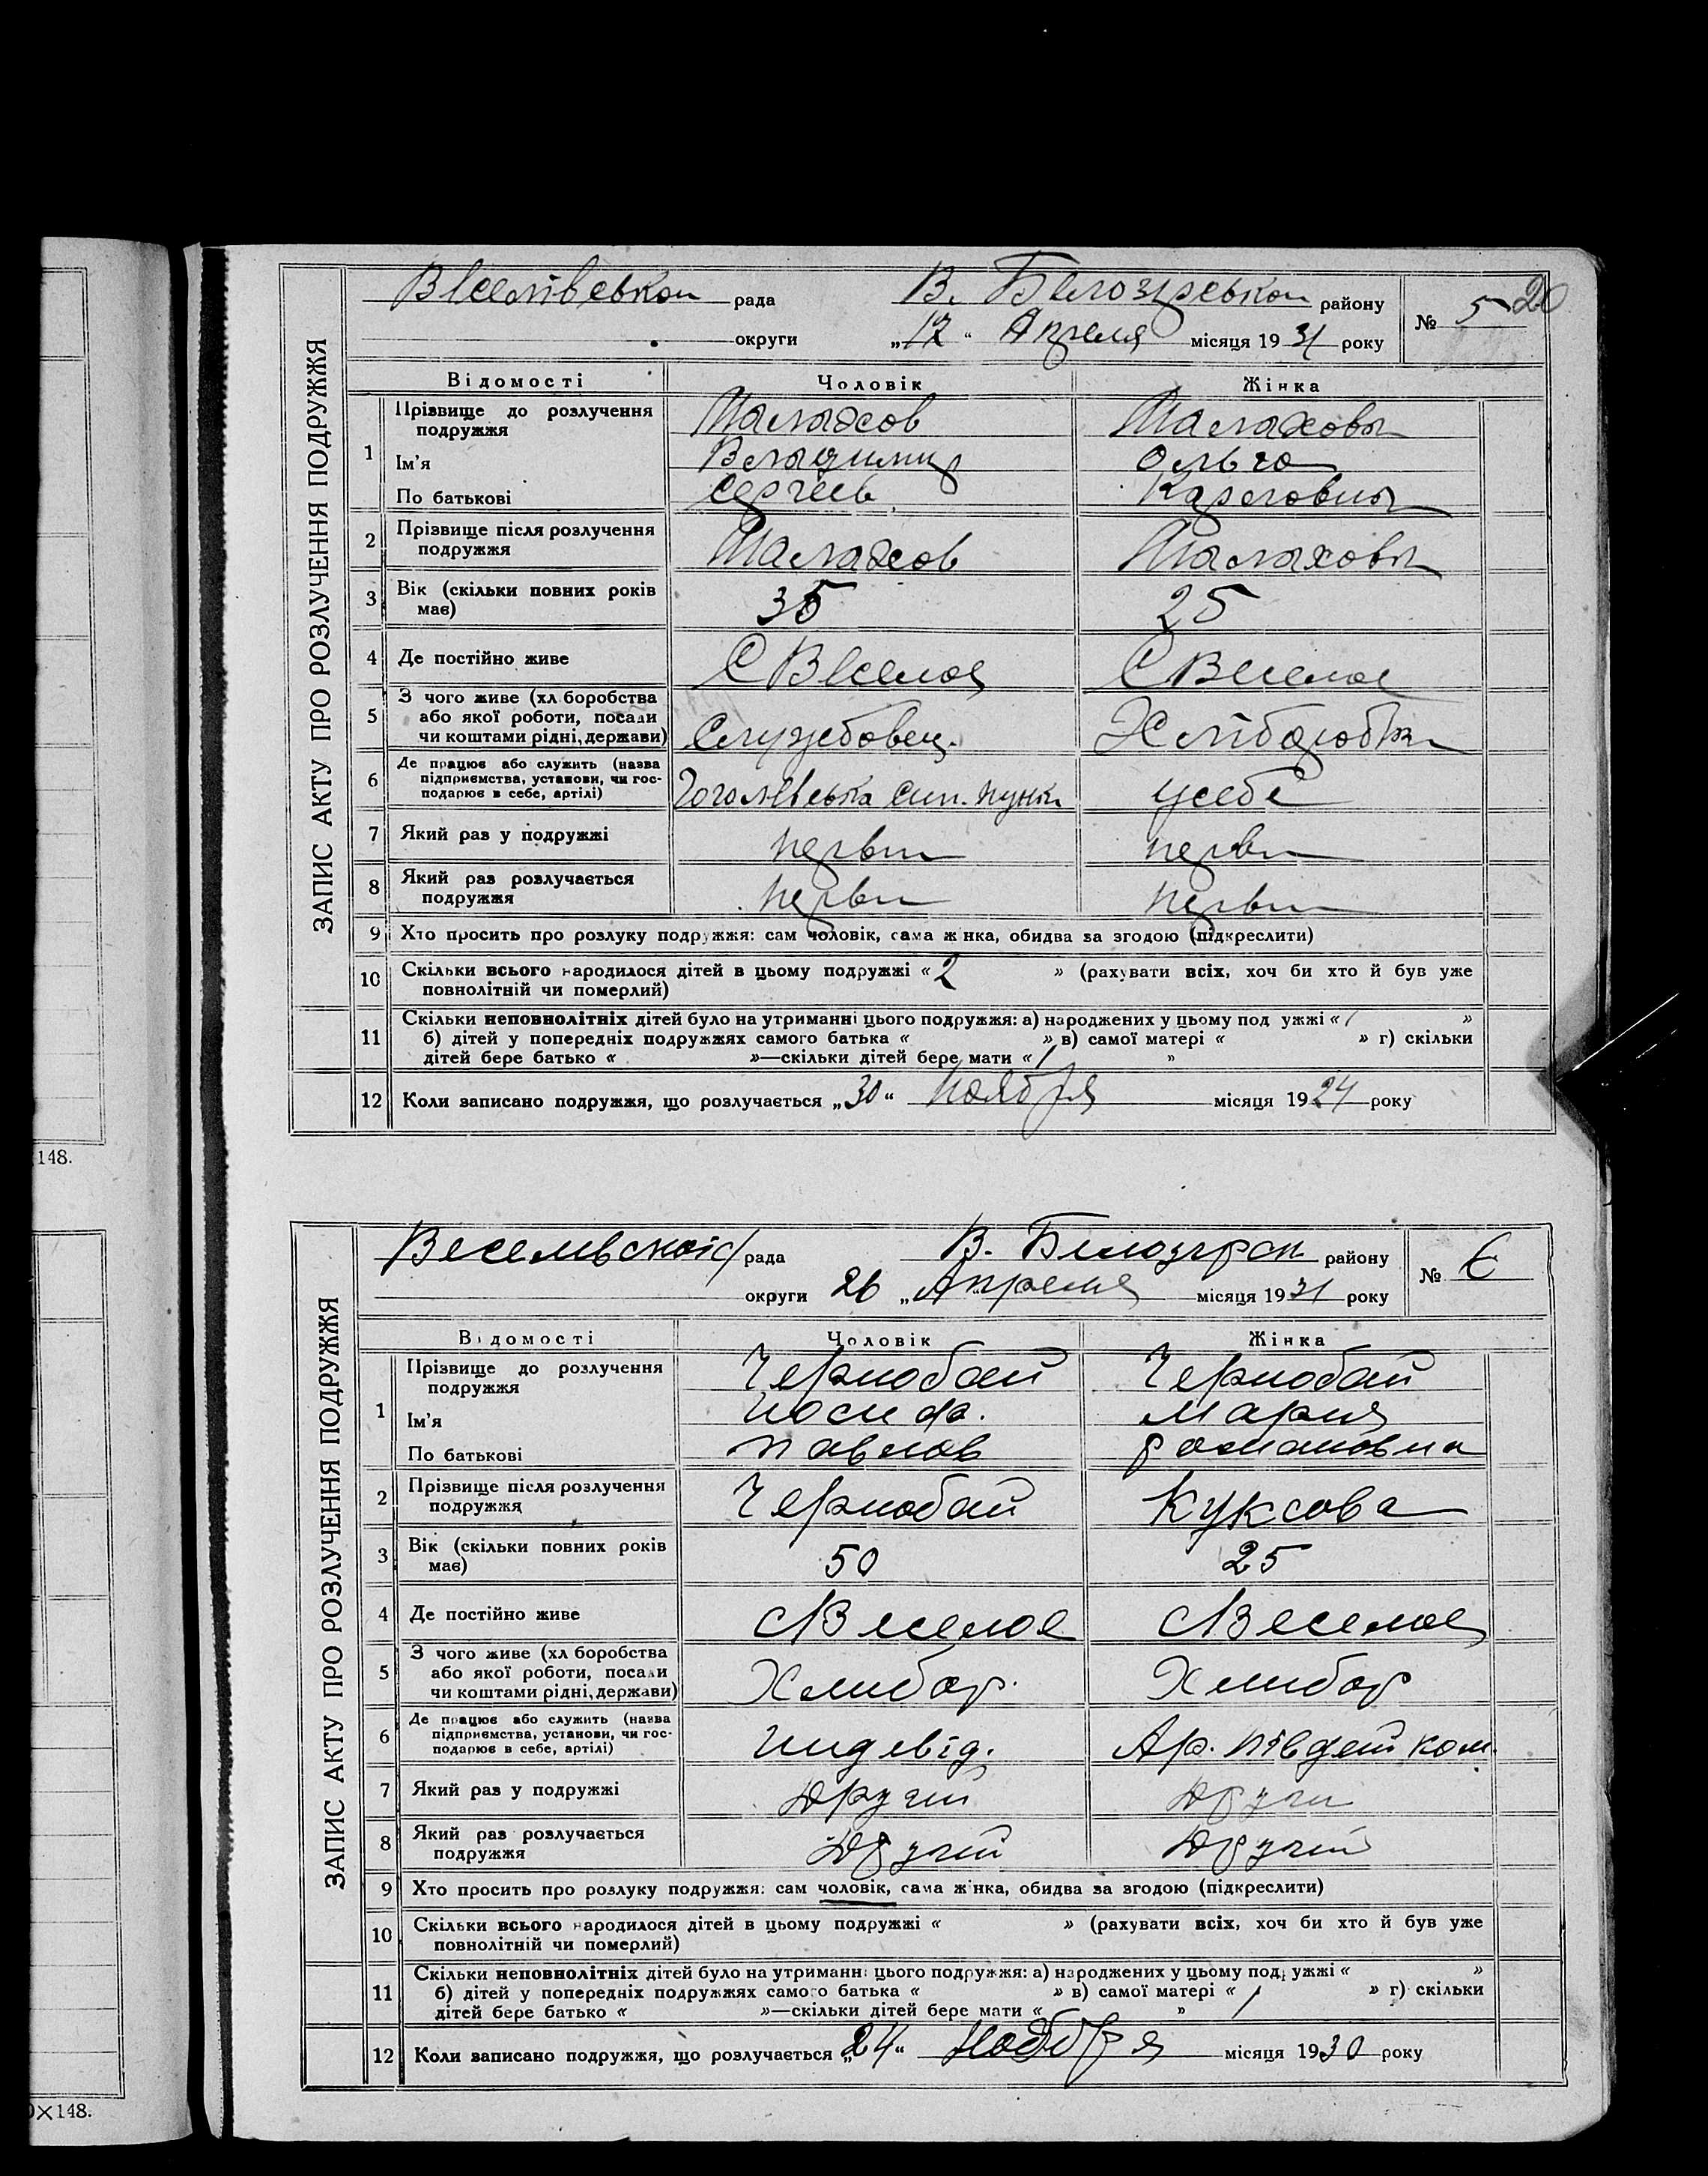 148.
×148.
20
ЗАПИС АКТУ ПРО РОЗЛУЧЕННЯ ПОДРУЖЖЯ
рада В. района
округи „ “ Апреля місяця 1931 року
№ 5
Відомості Чоловік Жінка
1 Прізвище до розлучення подружжя Малахов Малахова
Ім'я Владимир Ольга
По батькові Сергеев Карповна
2 Прізвище після розлучення подружжя Малахов Малахова
3 Вік (скільки повних років має) 35 25
4 Де постійно живе С Веселое С Веселое
5 З чого живе (хліборобства або якої роботи, посади чи коштами рідні, держави) Службовец.
6 Де працює або служить (назва підприємства, установи, чи господарює в себе, артілі) Гоголівська усебе
7 Який раз у подружжі перви перви
8 Який раз розлучається подружжя перви перви
9 Хто просить про розлуку подружжя: сам чоловік, сама жінка, обидва за згодою (підкреслити)
10 Скільки всього народилося дітей в цьому подружжі «2 » (рахувати всіх, хоч би хто й був уже
повнолітній чи померлий)
11 Скільки неповнолітніх дітей було на утриманні цього подружжя: а) народжених у цьому подружжі «1 »
б) дітей у попередніх подружжях самого батька « » в) самої матері « » г) скільки
дітей бере батько « »—скільки дітей бере мати «1 »
12 Коли записано подружжя, що розлучається „30“ Ноября місяця 1924 року
ЗАПИС АКТУ ПРО РОЗЛУЧЕННЯ ПОДРУЖЖЯ
рада В. району
округи 26 „Апреля місяця 1931 року
№ 6
Відомості Чоловік Жінка
1 Прізвище до розлучення подружжя Чернобай Чернобай
Ім'я Иосиф. Мария
По батькові Павлов Романовна
2 Прізвище після розлучення подружжя Чернобай Куксова
3 Вік (скільки повних років має) 50 25
4 Де постійно живе С Веселое С Веселое
5 З чого живе (хліборобства або якої роботи, посади чи коштами рідні, держави) Хлибор. Хлибор
6 Де працює або служить (назва підприємства, установи, чи господарює в себе, артілі) Индевід. Ар. ком.
7 Який раз у подружжі Другий Други
8 Який раз розлучається подружжя Другий Другий
9 Хто просить про розлуку подружжя: сам чоловік, сама жінка, обидва за згодою (підкреслити)
10 Скільки всього народилося дітей в цьому подружжі « » (рахувати всіх, хоч би хто й був уже
повнолітній чи померлий)
11 Скільки неповнолітніх дітей було на утриманні цього подружжя: а) народжених у цьому подружжі « »
б) дітей у попередніх подружжях самого батька « » в) самої матері « 1 » г) скільки
дітей бере батько « »—скільки дітей бере мати « »
12 Коли записано подружжя, що розлучається „24“ Ноября місяця 1930 року